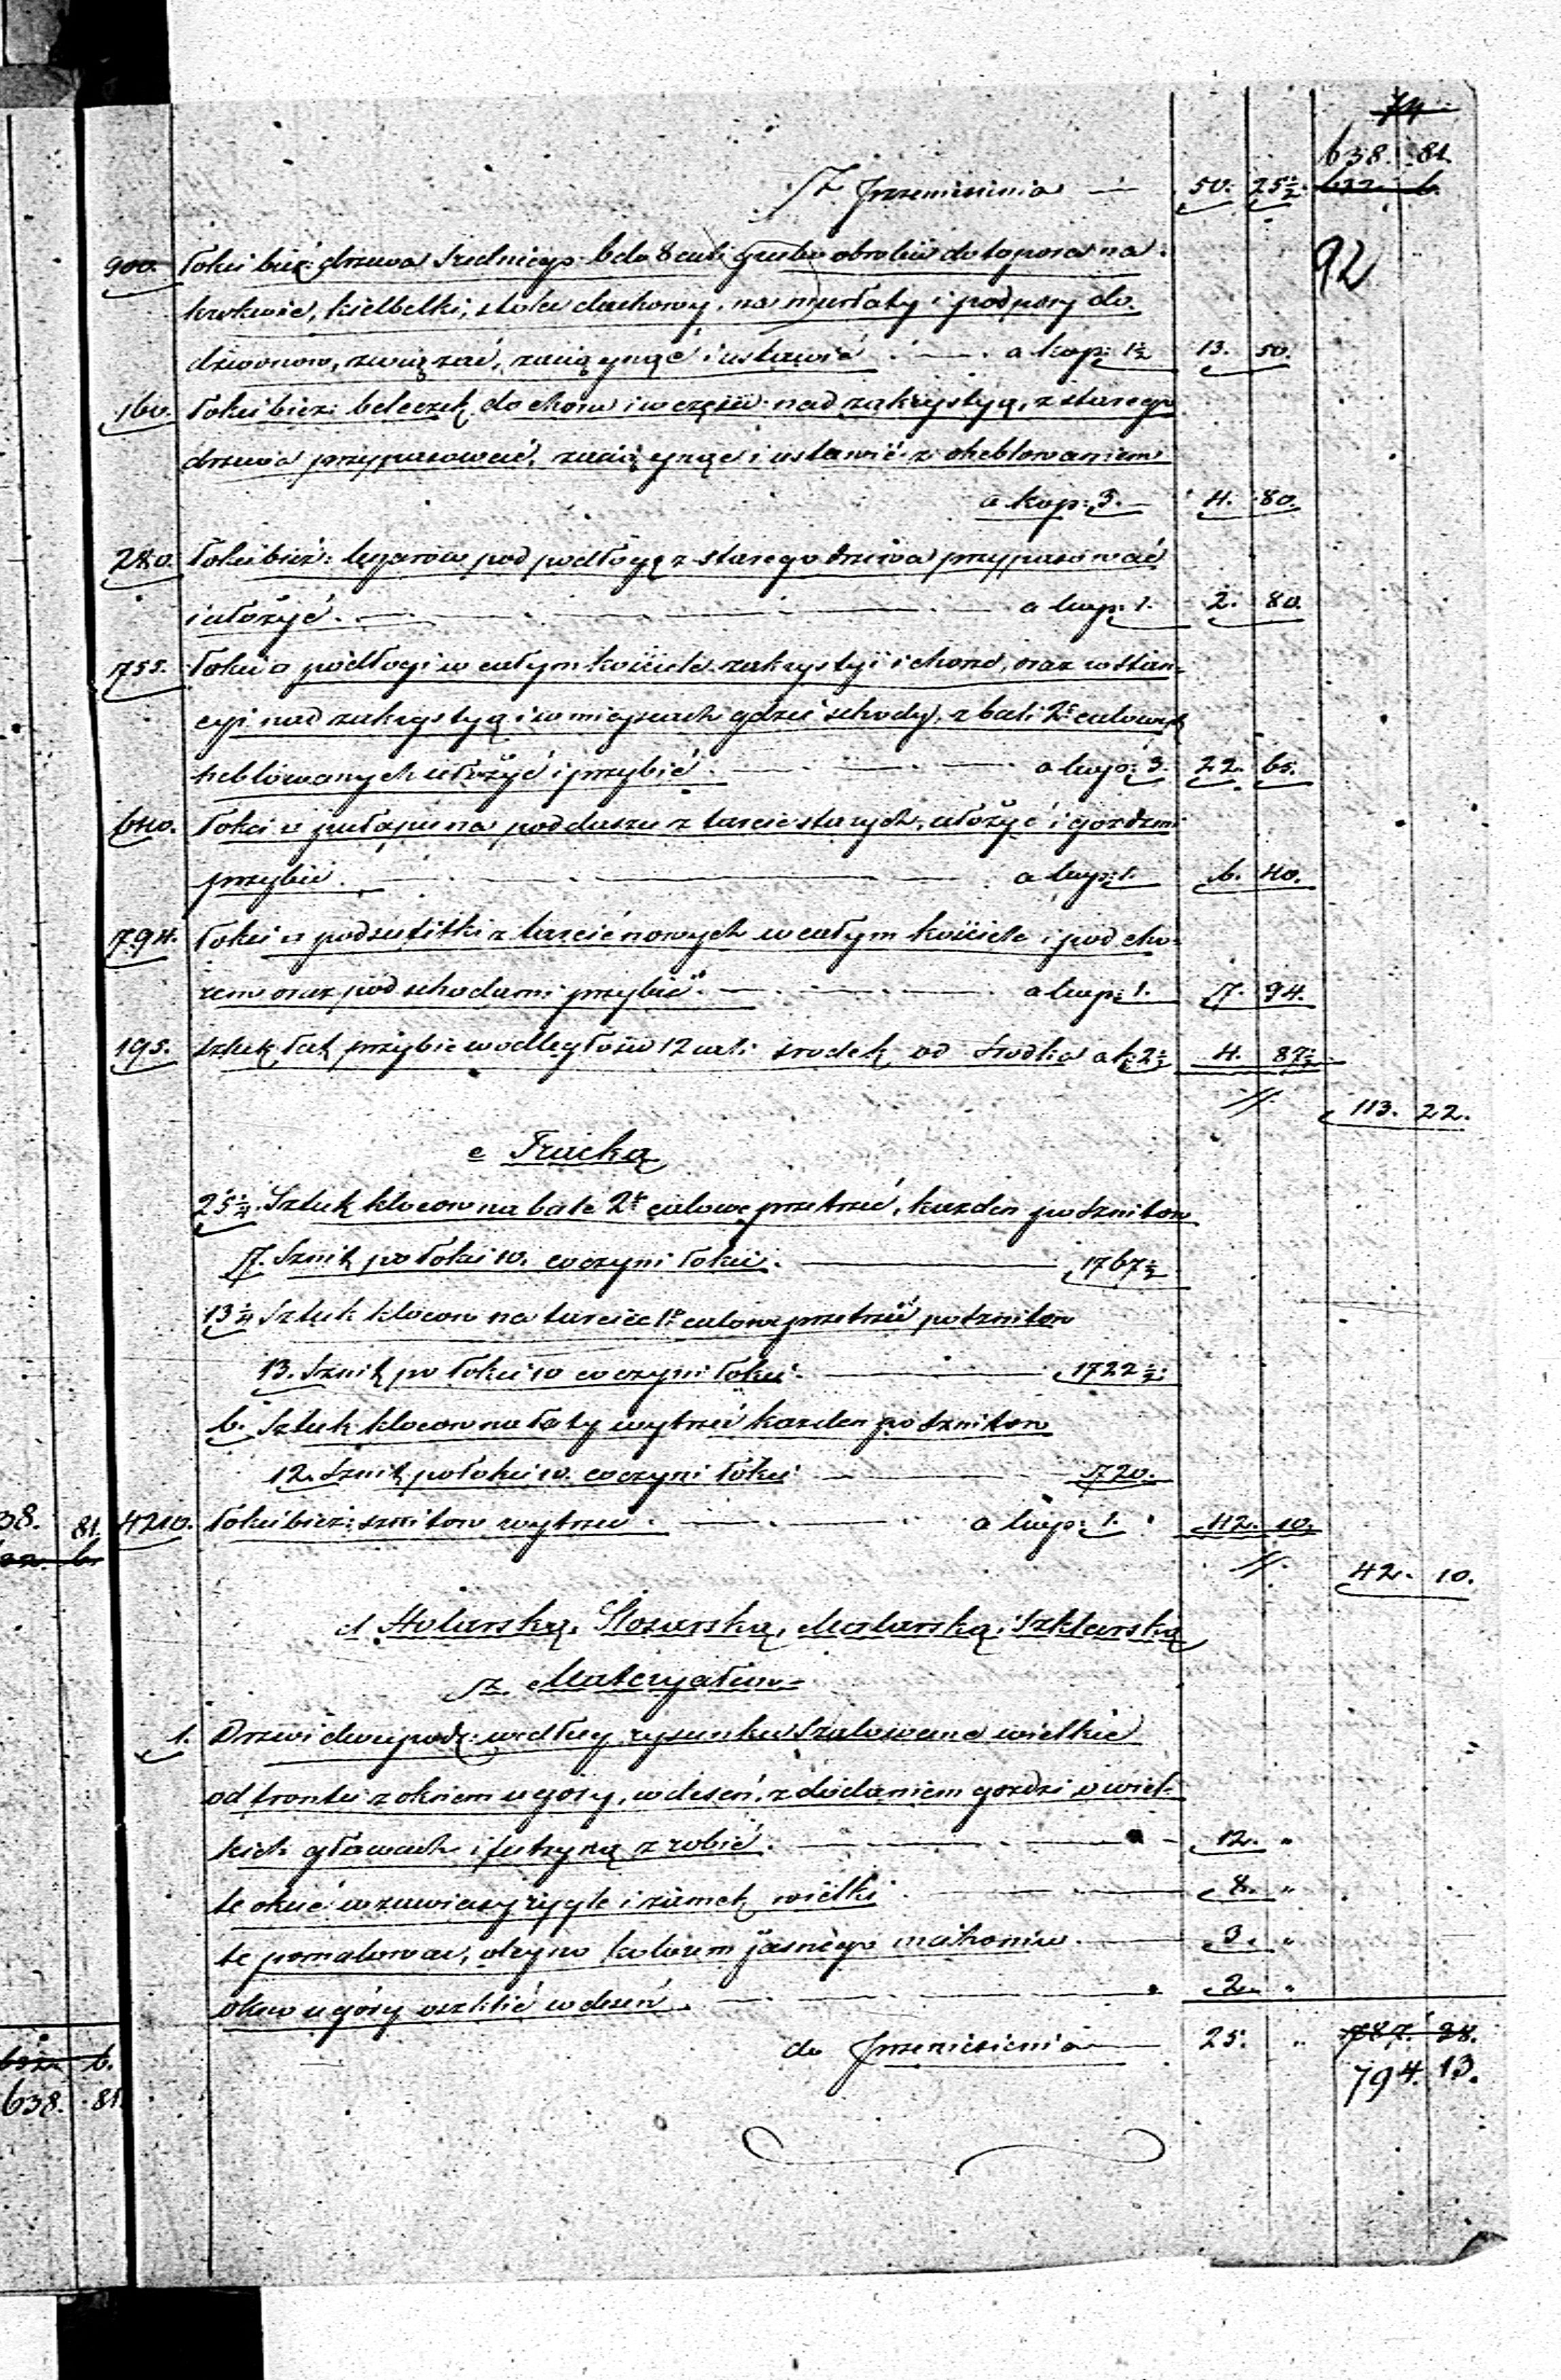 74
638. 81.
Z Przeniesienia — 50. 25½. 632. 6.
92
900. Łokci bież: drzewa średniego 6 do 8 cali grubo obrobić do topora na
krokwie, kielbelki, stolce dachowy, na murłaty i podpory do
dzwonow, związać, zaciągnąć i ustawić . — . a kop: 1½ 13. 50.
160. Łokci bież: beleczek do choru i w części nad zakrystyą, z starego
drzewa przypasować, zaciągnąć i ustawić z oheblowaniem
a kop: 3. — 4. 80.
280. Łokci bież: legarow pod podłogę z starego drzewa przypasować
i ułożyć . — a kop: 1. 2. 80.
755. Łokci □ podłogi w całym kościele zakrystyi i chorze, oraz w stan-
cyi nad zakrystyą i w miejscach gdzie schody, z bali 2 calowych
heblowanych ułożyć i przybić . — a kop: 3. 22. 65.
640. Łokci □ pułapu na poddaszu z tarcic starych, ułożyć i gozdzmi
przybić . — a kop: 1. 6. 40.
794. Łokci □ podsufitki z tarcic nowych w całym kościele i pod cho-
rem oraz pod schodami przybić . — a kop: 1. 7. 94.
195. sztuk łat przybić w odległości 12 cali środek od środka a k: 2½ 4. 87½
// 113. 22.
c Tracką
25¼. Sztuk klocow na bale 2 calowe przetrzeć, każden po sznitow
7. Sznit po łokci 10. co czyni łokci . — 1767½
13¼ Sztuk klocow na tarcice 1 calowe przetrzeć po sznitow
13. Sznit po łokci 10 co czyni łokci . — 1722½.
6. Sztuk klocow na łaty wytrzeć każden po sznitow
12. Sznit po łokci 10. co czyni łokci — 720.
38. 81. 4210. Łokci bież: sznitow wytrzeć . — a kop: 1. 42. 10.
// 42. 10.
d Stolarską, Slosarską, Malarską i Szklarską
z Materyałow
1. Drzwi dwupoł: według rysunku Szalowane wielkie
od frontu z oknem u gory, w deseń, z dodaniem gozdzi o wiel-
kich głowach i futryną zrobić . — 12. "
te okuć w zawiasy rygle i zamek wielki . — 8. "
te pomalować, olejno kolorem jasnego mahoniu . — 3. "
okno u góry oszklić w deseń . — 2. "
do Przeniesienia — 25. " 787. 38.
794. 13.
632 6.
638. 81.